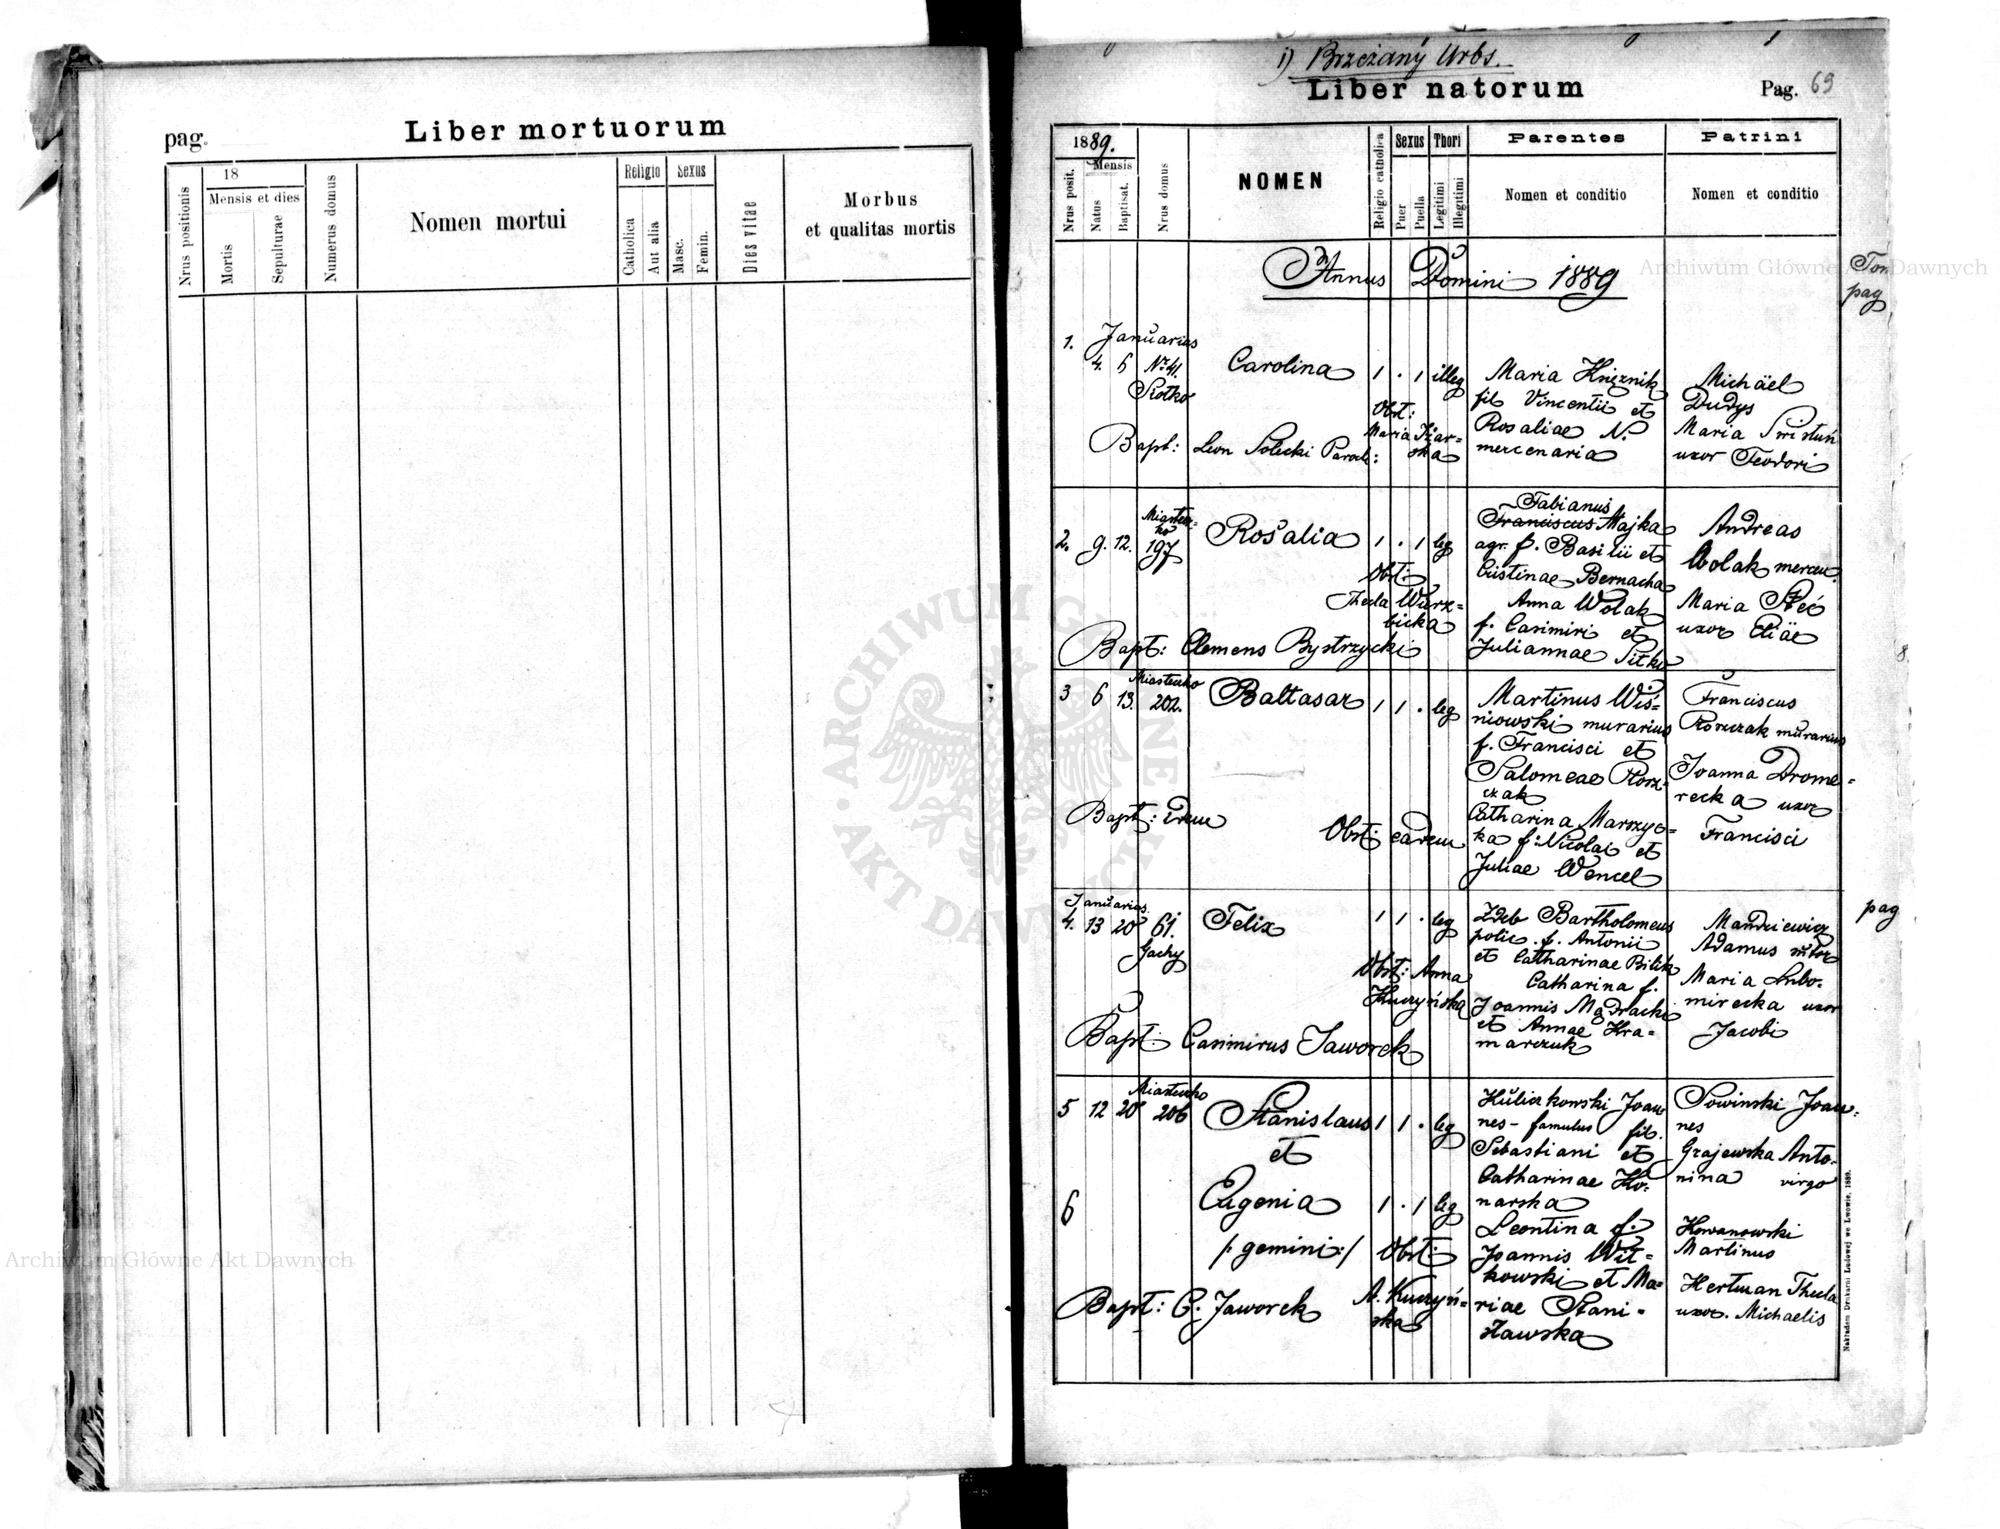 pag.
Liber mortuorum
Nrus positionis
18
Mensis et dies
Mortis
Sepulturae
Numerus domus
Nomen mortui
Religio
Catholica
Aut alia
Sexus
Masc.
Femin.
Dies vitae
Morbus
et qualitas mortis
i) Brzeżany Urbs.
Liber natorum
Pag. 69
1889.
Nrus posit.
Mensis
Natus
Baptisat.
Nrus domus
NOMEN
Religio catholica
Sexus
Puer
Puella
Thori
Legitimi
Illegitimi
Parentes
Nomen et conditio
Patrini
Nomen et conditio
Annus Domini 1889
Tom
pag
1.
Januarius
4. 6 Nr 41.
Siołko
Carolina
1 . 1 illeg
Obst:
Maria Szar=
ska
Bapt: Leon Solecki Paroch:
Maria Księżnik
fil Vincentii et
Rosaliae N.
mercenaria
Michäel
Dudys
Maria Swistuń
uxor Teodori
2. 9. 12.
Miastecz-
ko
197
Rosalia
1 . 1 leg
Obst:
Thecla Wierz=
bicka
Bapt: Clemens Bystrzycki
Fabianus
Franciscus Majka
agr. f. Basilii et
Cristinae Bernacha
Anna Wolak
f. Casimiri et
Juliannae Sitko
Andreas
Wolak mercen.
Maria Steć
uxor Eliäe
3 6 13.
Miasteczko
202.
Baltasar
1 1 . leg
Bapt: idem
Obst: eadem
Martinus Wiś=
niowski murarius
f. Francisci et
Salomeae Korz=
czak
Catharina Marszyc=
ka f. Nicolai et
Juliae Wencel
Franciscus
Korzczak murarius
Joanna Drome=
recka uxor
Francisci
Januarius
4. 13 20 61.
Gachy
Felix
1 1 . leg
Obst: Anna
Kuczyńska
Bapt: Casimirus Jaworek
Zdeb Bartholomeus
polic. f. Antonii
et Catharinae Bilik
Catharina f.
Joannis Mądracki
et Annae Kra=
marczuk
Mandziewicz
Adamus sutor
Maria Lubo=
mirecka uxor
Jacobi
pag
5 12 20
Miasteczko
206
Stanislaus
et
1 1 . leg
6
Eugenia
1 . 1 leg
/: gemini :/
Obst:
A. Kuczyń=
ska
Bapt: C. Jaworek
Kuliczkowski Joan
nes - famulus fil.
Sebastiani et
Catharinae Ko=
narska
Leontina f.
Joannis Wit=
kowski et Ma=
riae Stani=
sławska
Sowinski Joan=
nes
Grajewska Anto=
nina virgo
Kowanowski
Martinus
Hertman Thecla
uxor. Michaelis
Nakładem Drukarni Ludowej we Lwowie, 1889.
Archiwum Główne Akt Dawnych
Archiwum Główne Akt Dawnych
ARCHIWUM GŁÓWNE
AKT DAWNYCH